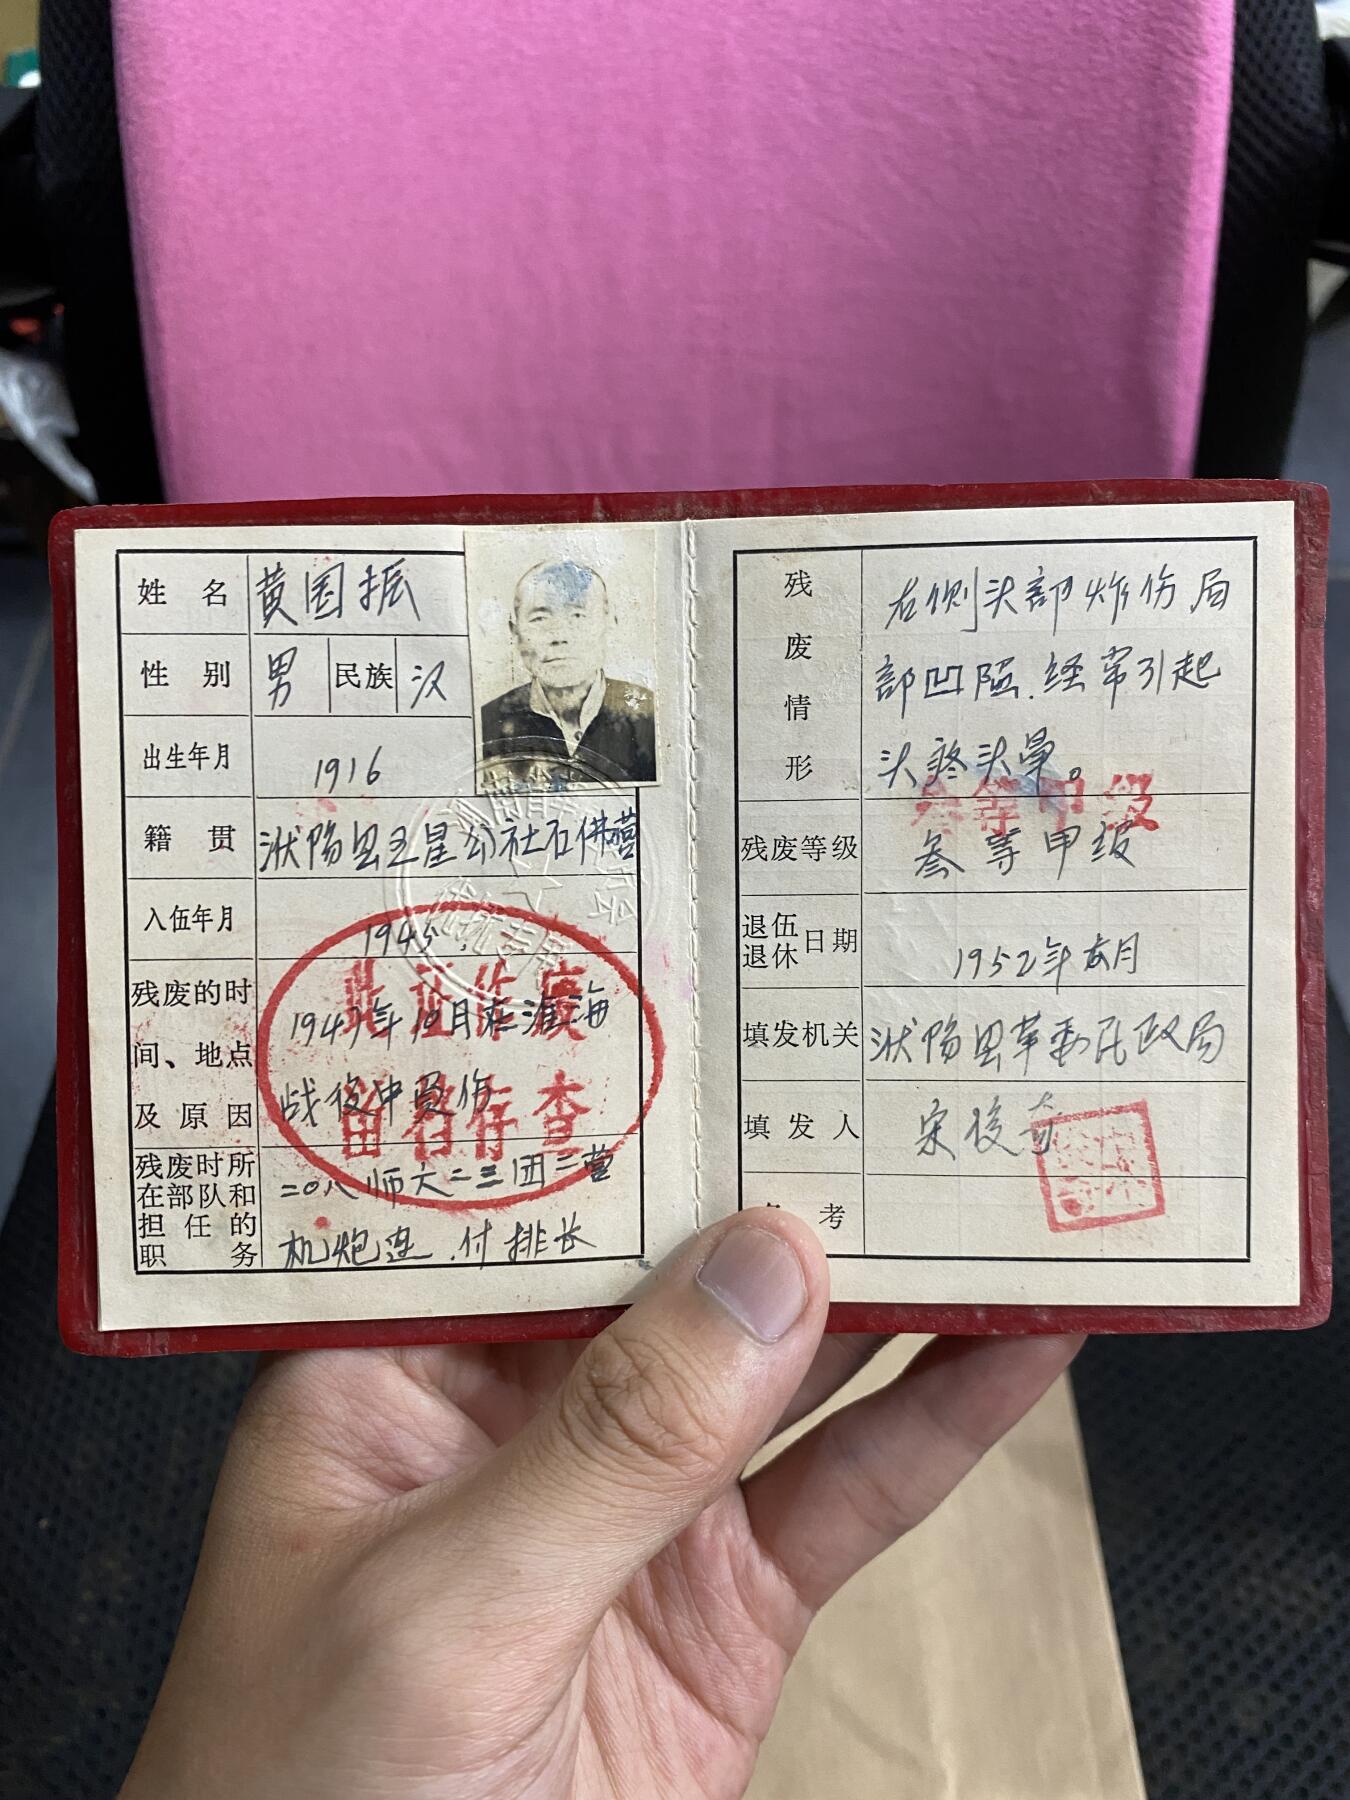 姓名 黄国振
性别 男 民族 汉
出生年月 1916
籍贯 洑阳县五星公社石佛营
入伍年月 1945.
残废的时间、地点及原因 1947年10月在淮海
战役中负伤
此证作废
留名存查
残废时所在部队和担任的职务 二〇八师六二三团二营
机炮连.付排长
残废情形 右侧头部炸伤局
部凹陷.经常引起
头疼头晕。
叁等甲级
残废等级 叁等甲级
退伍退休日期 1952年 月
填发机关 洑阳县革委民政局
填发人 宋俊奇
考